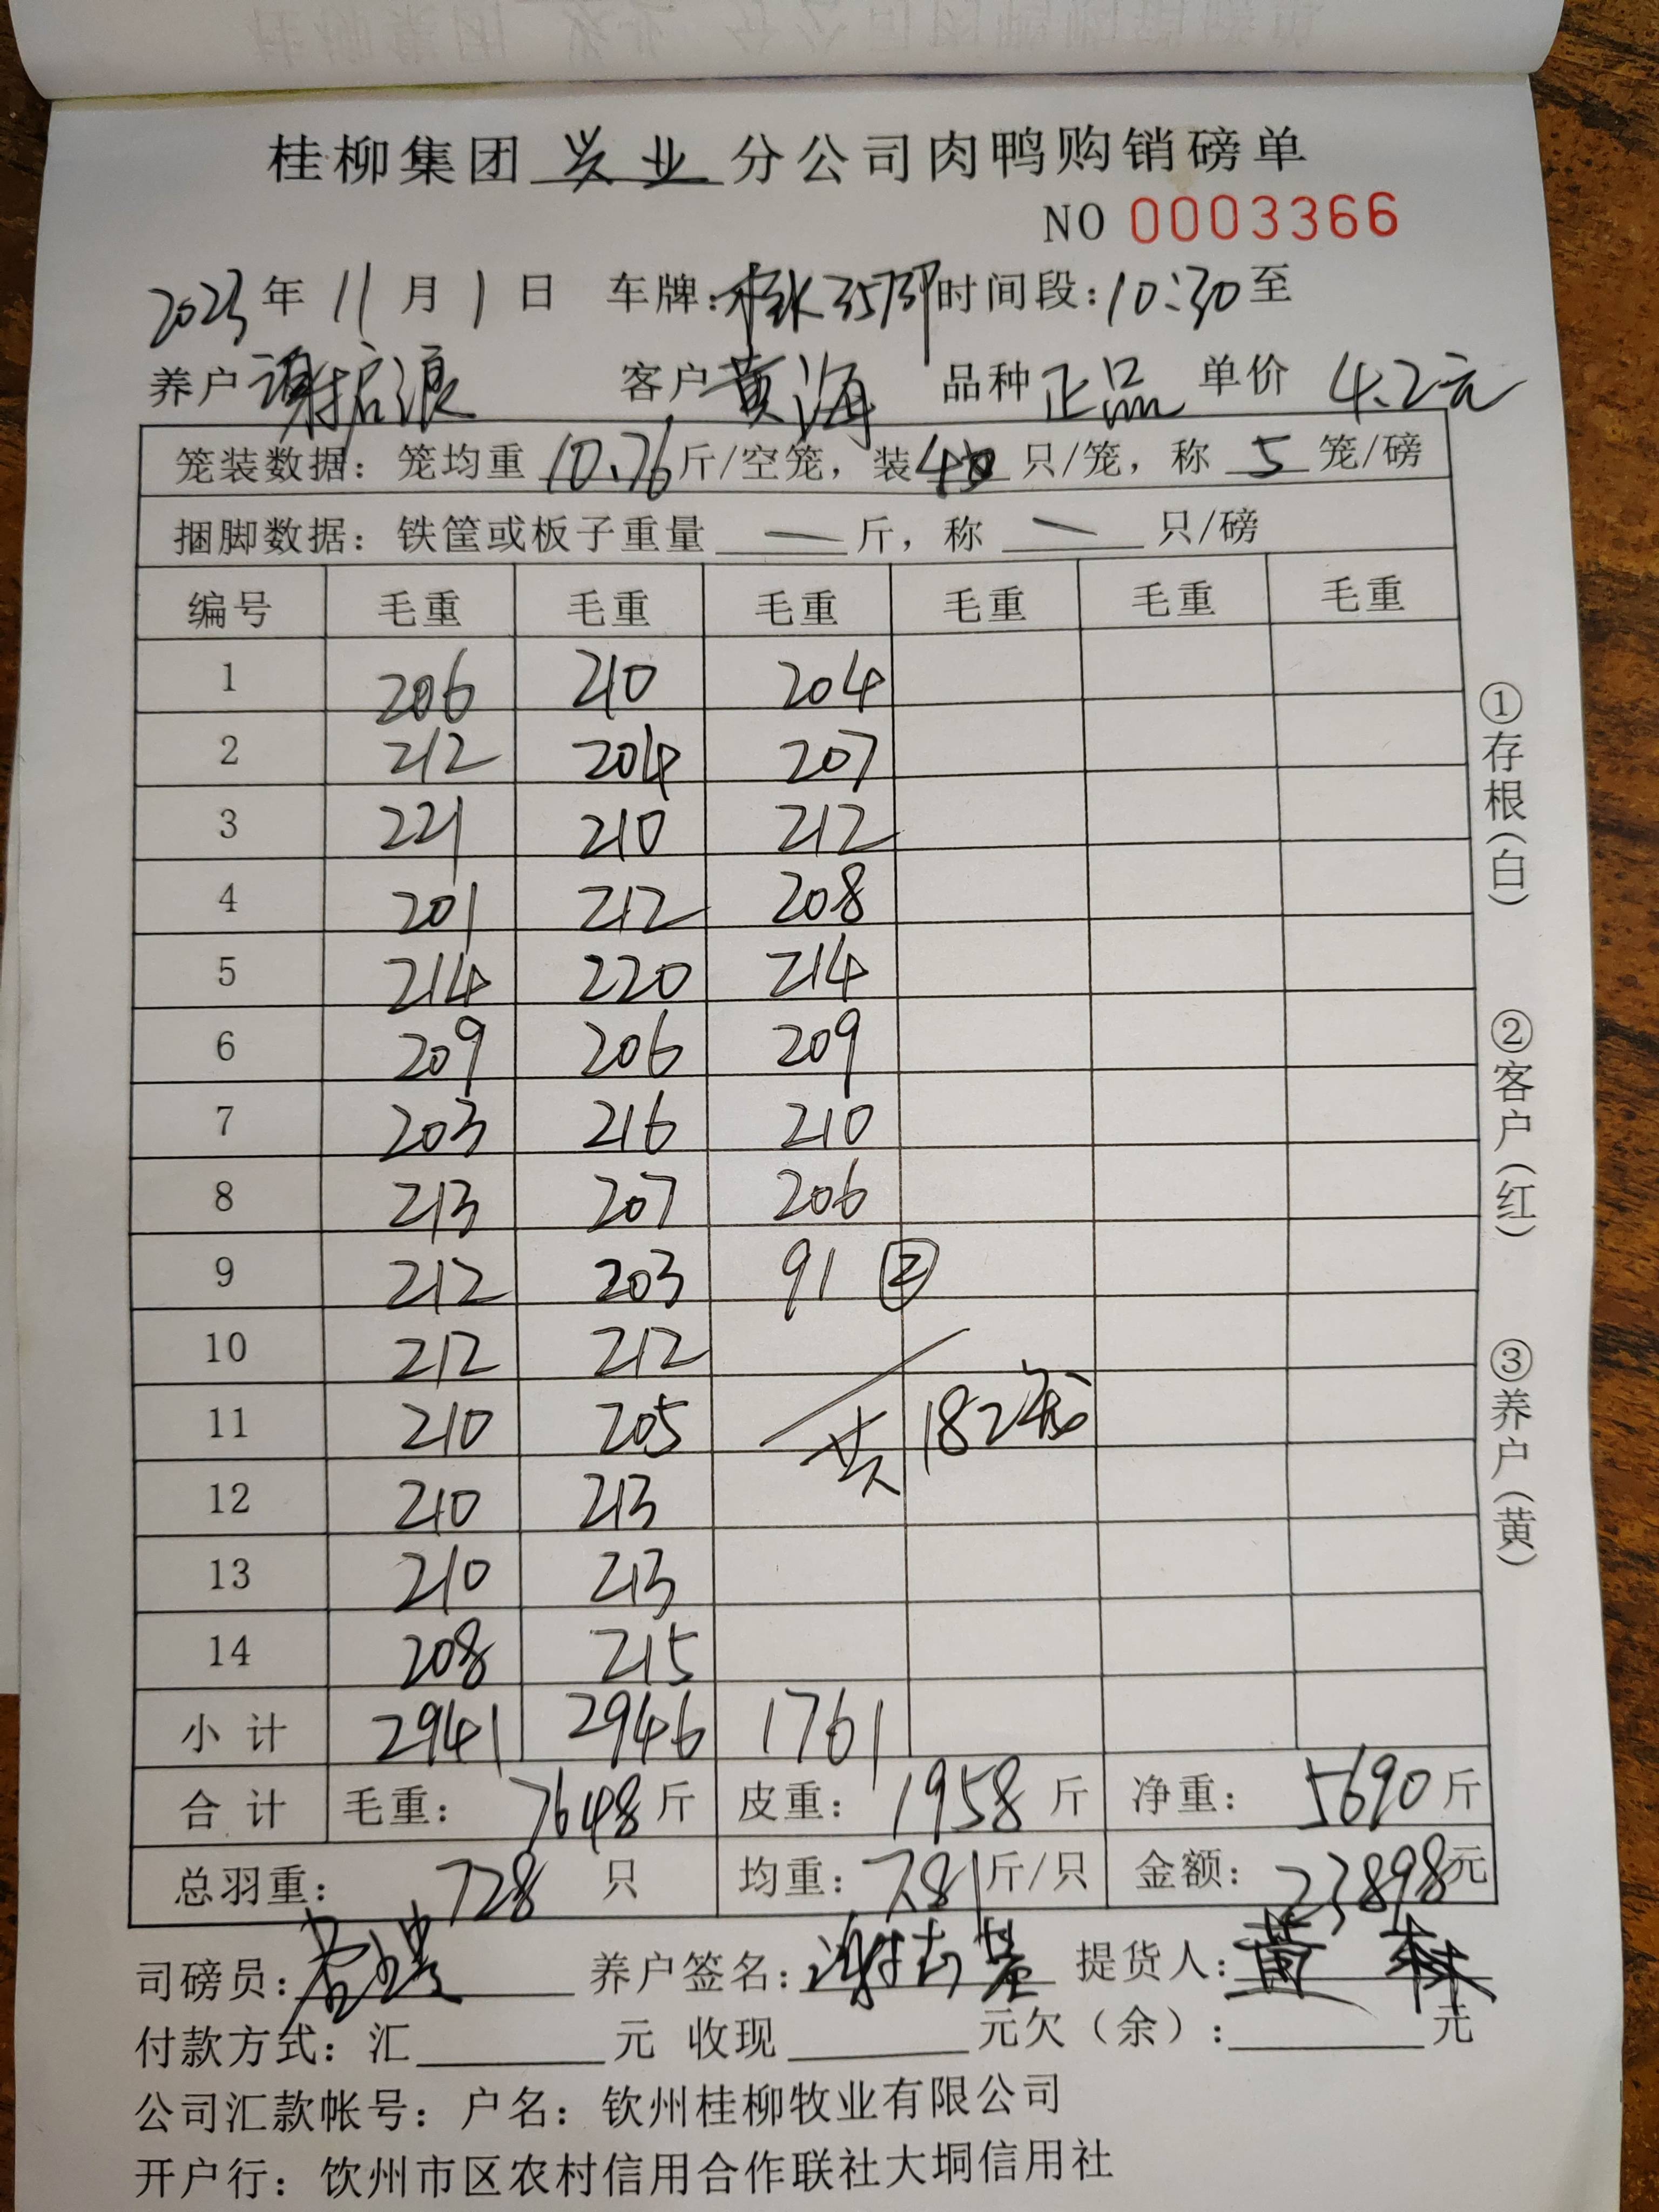 桂柳集团 兴业 分公司肉鸭购销磅单
NO 0003366
2023年 11月 1日 车牌: 时间段:10:30至
养户 谢 浪 客户 黄海 品种 正品 单价 4.2元
笼装数据: 笼均重 10.76 斤/空笼, 装 只/笼, 称 5 笼/磅
捆脚数据: 铁筐或板子重量 — 斤, 称 — 只/磅
编号 毛重 毛重 毛重 毛重 毛重 毛重
1 206 210 204
2 212 204 207
3 221 210 212
4 201 212 208
5 214 220 214
6 209 206 209
7 203 216 210
8 213 207 206
9 212 203 91 ②
10 212 212
11 210 205 共 182笼
12 210 213
13 210 213
14 208 215
小计 2941 2946 1761
合计 毛重: 7648 斤 皮重: 1958 斤 净重: 5690 斤
总羽重: 728 只 均重: 7.81 斤/只 金额: 23898元
司磅员: 养户签名: 提货人: 黄
付款方式: 汇 元 收现 元欠(余): 元
公司汇款帐号: 户名: 钦州桂柳牧业有限公司
开户行: 饮州市区农村信用合作联社大垌信用社
①存根(白)
②客户(红)
③养户(黄)